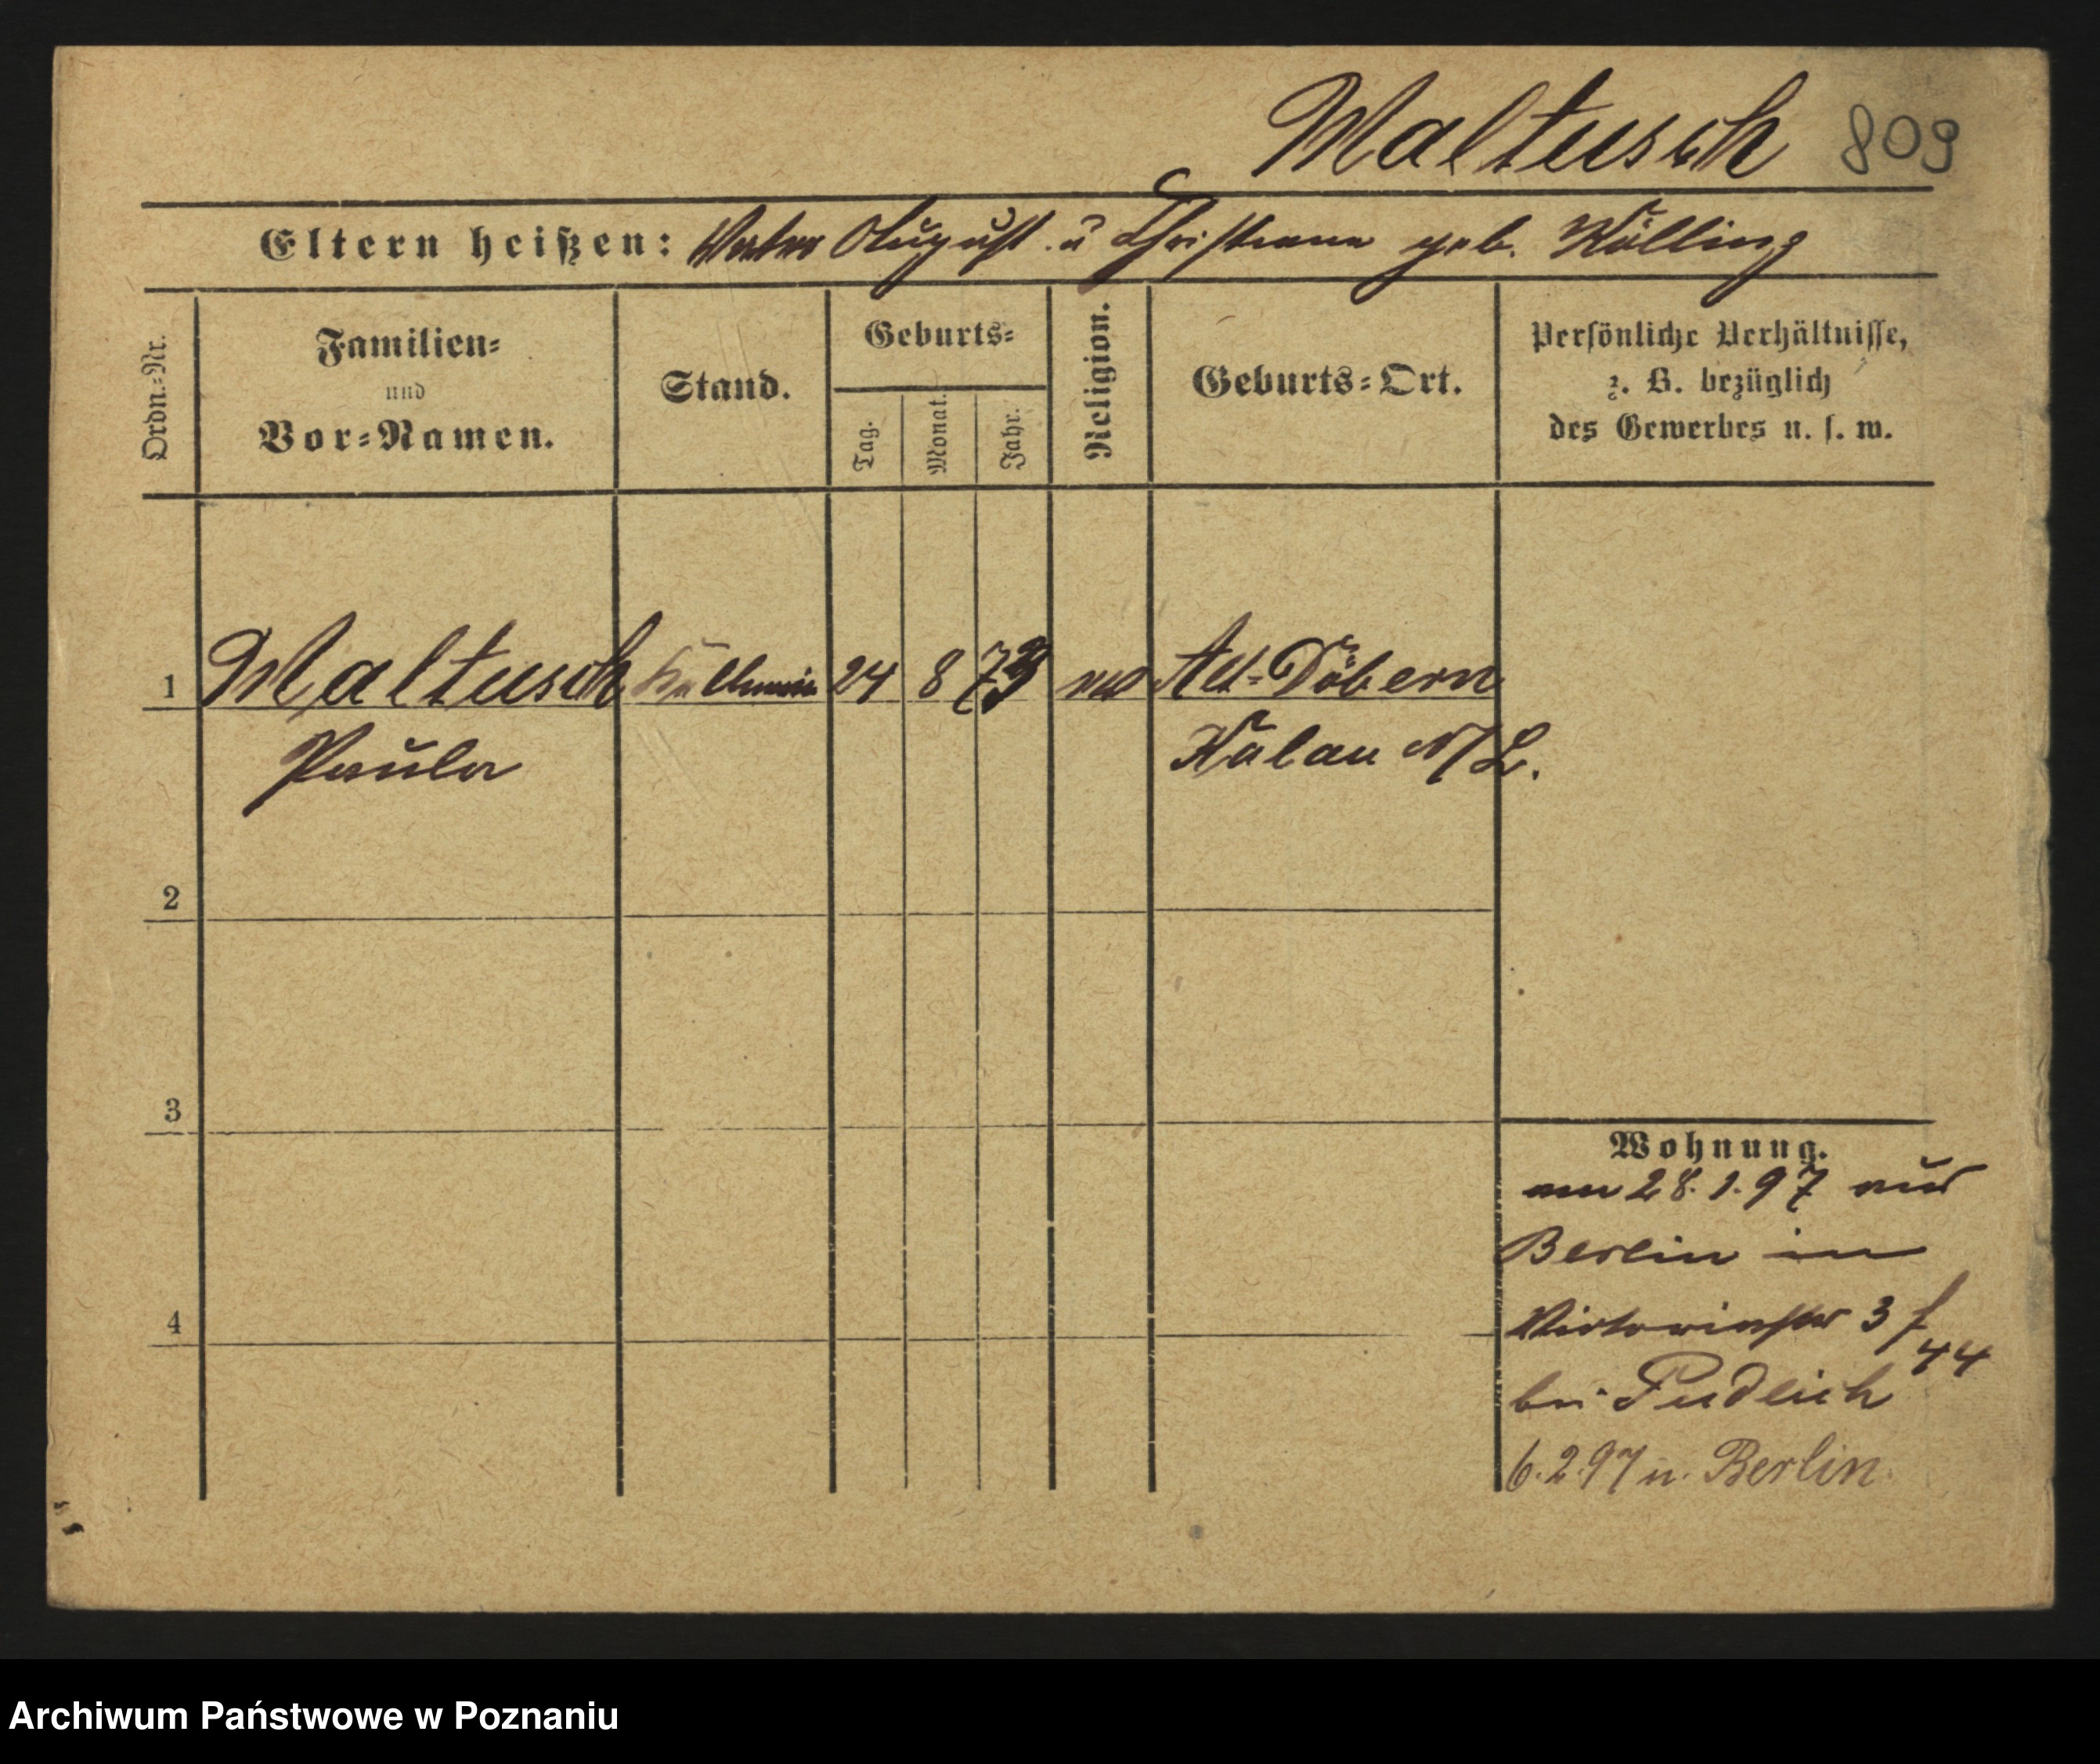 Maltusch 809
Eltern heißen: Vater August u Christiane geb. Kölling
Ordn.-Nr.
Familien-
und
Vor-Namen.
Stand.
Geburts-
Tag.
Monat.
Jahr.
Religion.
Geburts-Ort.
Persönliche Verhältnisse,
z. B. bezüglich
des Gewerbes u. s. w.
1 Maltusch Kellnerin 24 8 73 Alt-Döbern
Paula Kalau N/L.
2
3
4
Wohnung.
am 28. 1. 97 aus
Berlin in
Victoriastr 3
44
bei Pudlich
6. 2. 97 n. Berlin.
Archiwum Państwowe w Poznaniu